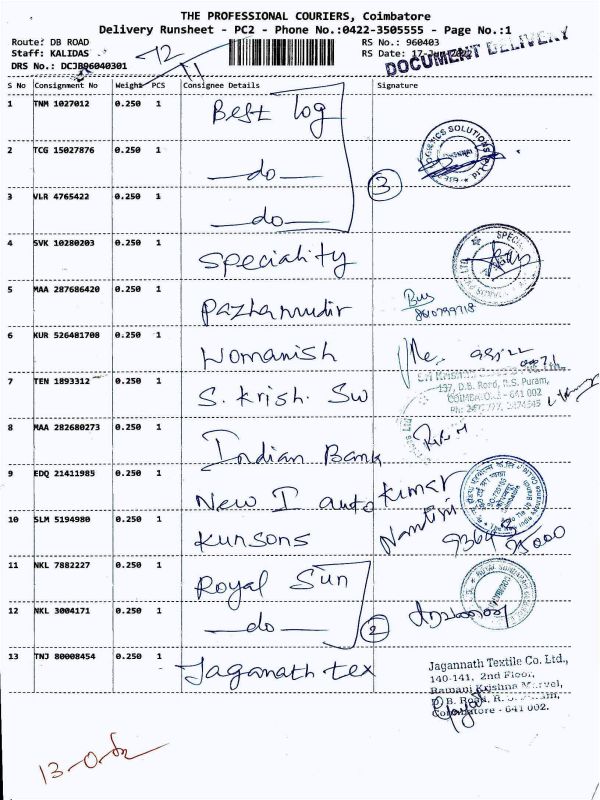 THE PROFESSIONAL COURIERS, Coimbatore
Delivery Runsheet - PC2 - Phone No.:0422-3505555 - Page No.:1
Route: DB ROAD
Staff: KALIDAS
DRS No.: DCJB96040301
RS No.: 960403
RS Date: 17-Jun-2022
DOCUMENT DELIVERY
12
11
S No Consignment No Weight PCS Consignee Details Signature
1 TNM 1027012 0.250 1 Best log
2 TCG 15027876 0.250 1 —do—
3 VLR 4765422 0.250 1 —do—
3
4 SVK 10280203 0.250 1 Speciality
5 MAA 287686420 0.250 1 Pazhamudir
6 KUR 526481708 0.250 1 Womanish
7 TEN 1893312 0.250 1 S. Krish. Sw
137, D.B. Road, R.S. Puram,
COIMBATORE - 641 002
8 MAA 282680273 0.250 1 Indian Bank
9 EDQ 21411985 0.250 1 New I auto Kumar
10 SLM 5194980 0.250 1 Kunsons
11 NKL 7882227 0.250 1 Royal Sun
12 NKL 3004171 0.250 1 —do—
2
13 TNJ 80008454 0.250 1 Jaganath tex
Jagannath Textile Co. Ltd.,
140-141, 2nd Floor,
Ramani Krishna Marvel,
D. B. Road, R. S. Puram,
Coimbatore - 641 002.